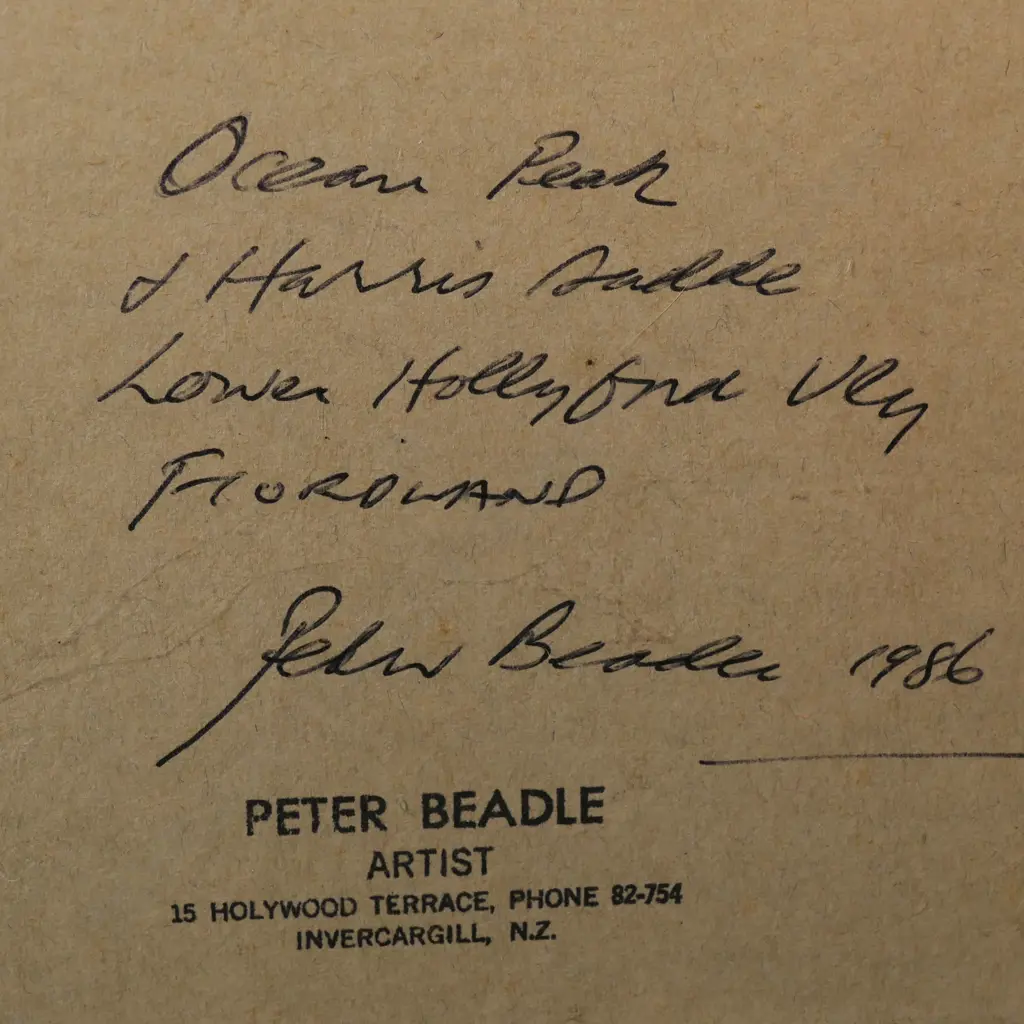 Ocean Peak
& Harris Sadde
Lower Hollyford Vly
FIORDLAND
Peter Beadle 1986
PETER BEADLE
ARTIST
15 HOLYWOOD TERRACE, PHONE 82-754
INVERCARGILL, N.Z.